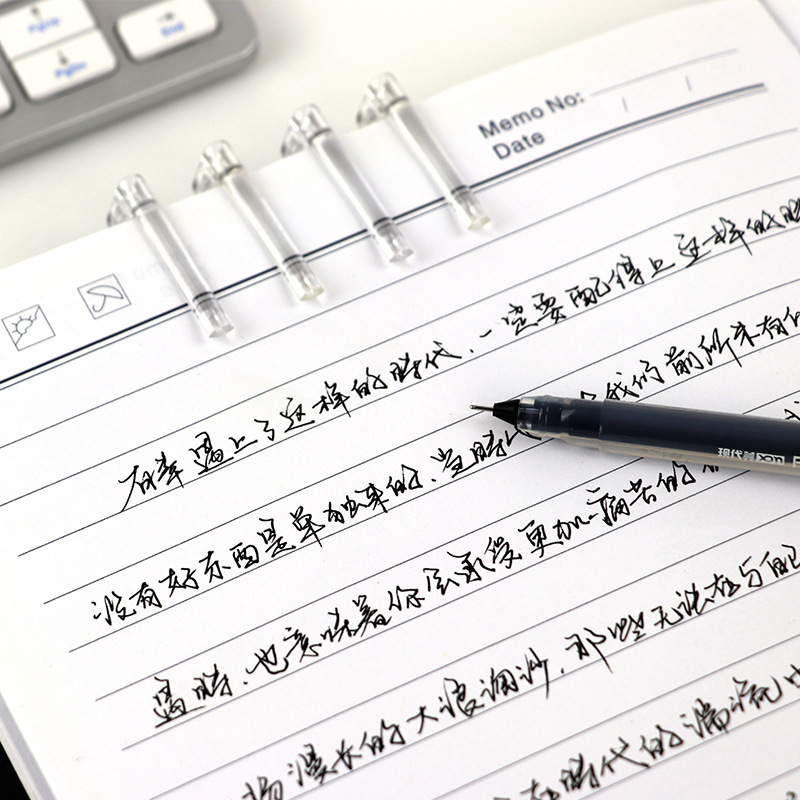 PgUp
PgDn
End
Memo No:
Date
有幸遇上了这样的時代，一定要配得上这样的時
没有好东西是单独来的，当時代 我们前所未有的
遇時，也意味着你会承受更加痛苦的
场漫长的大浪淘沙，那些无法在与自己
在時代的湍流中